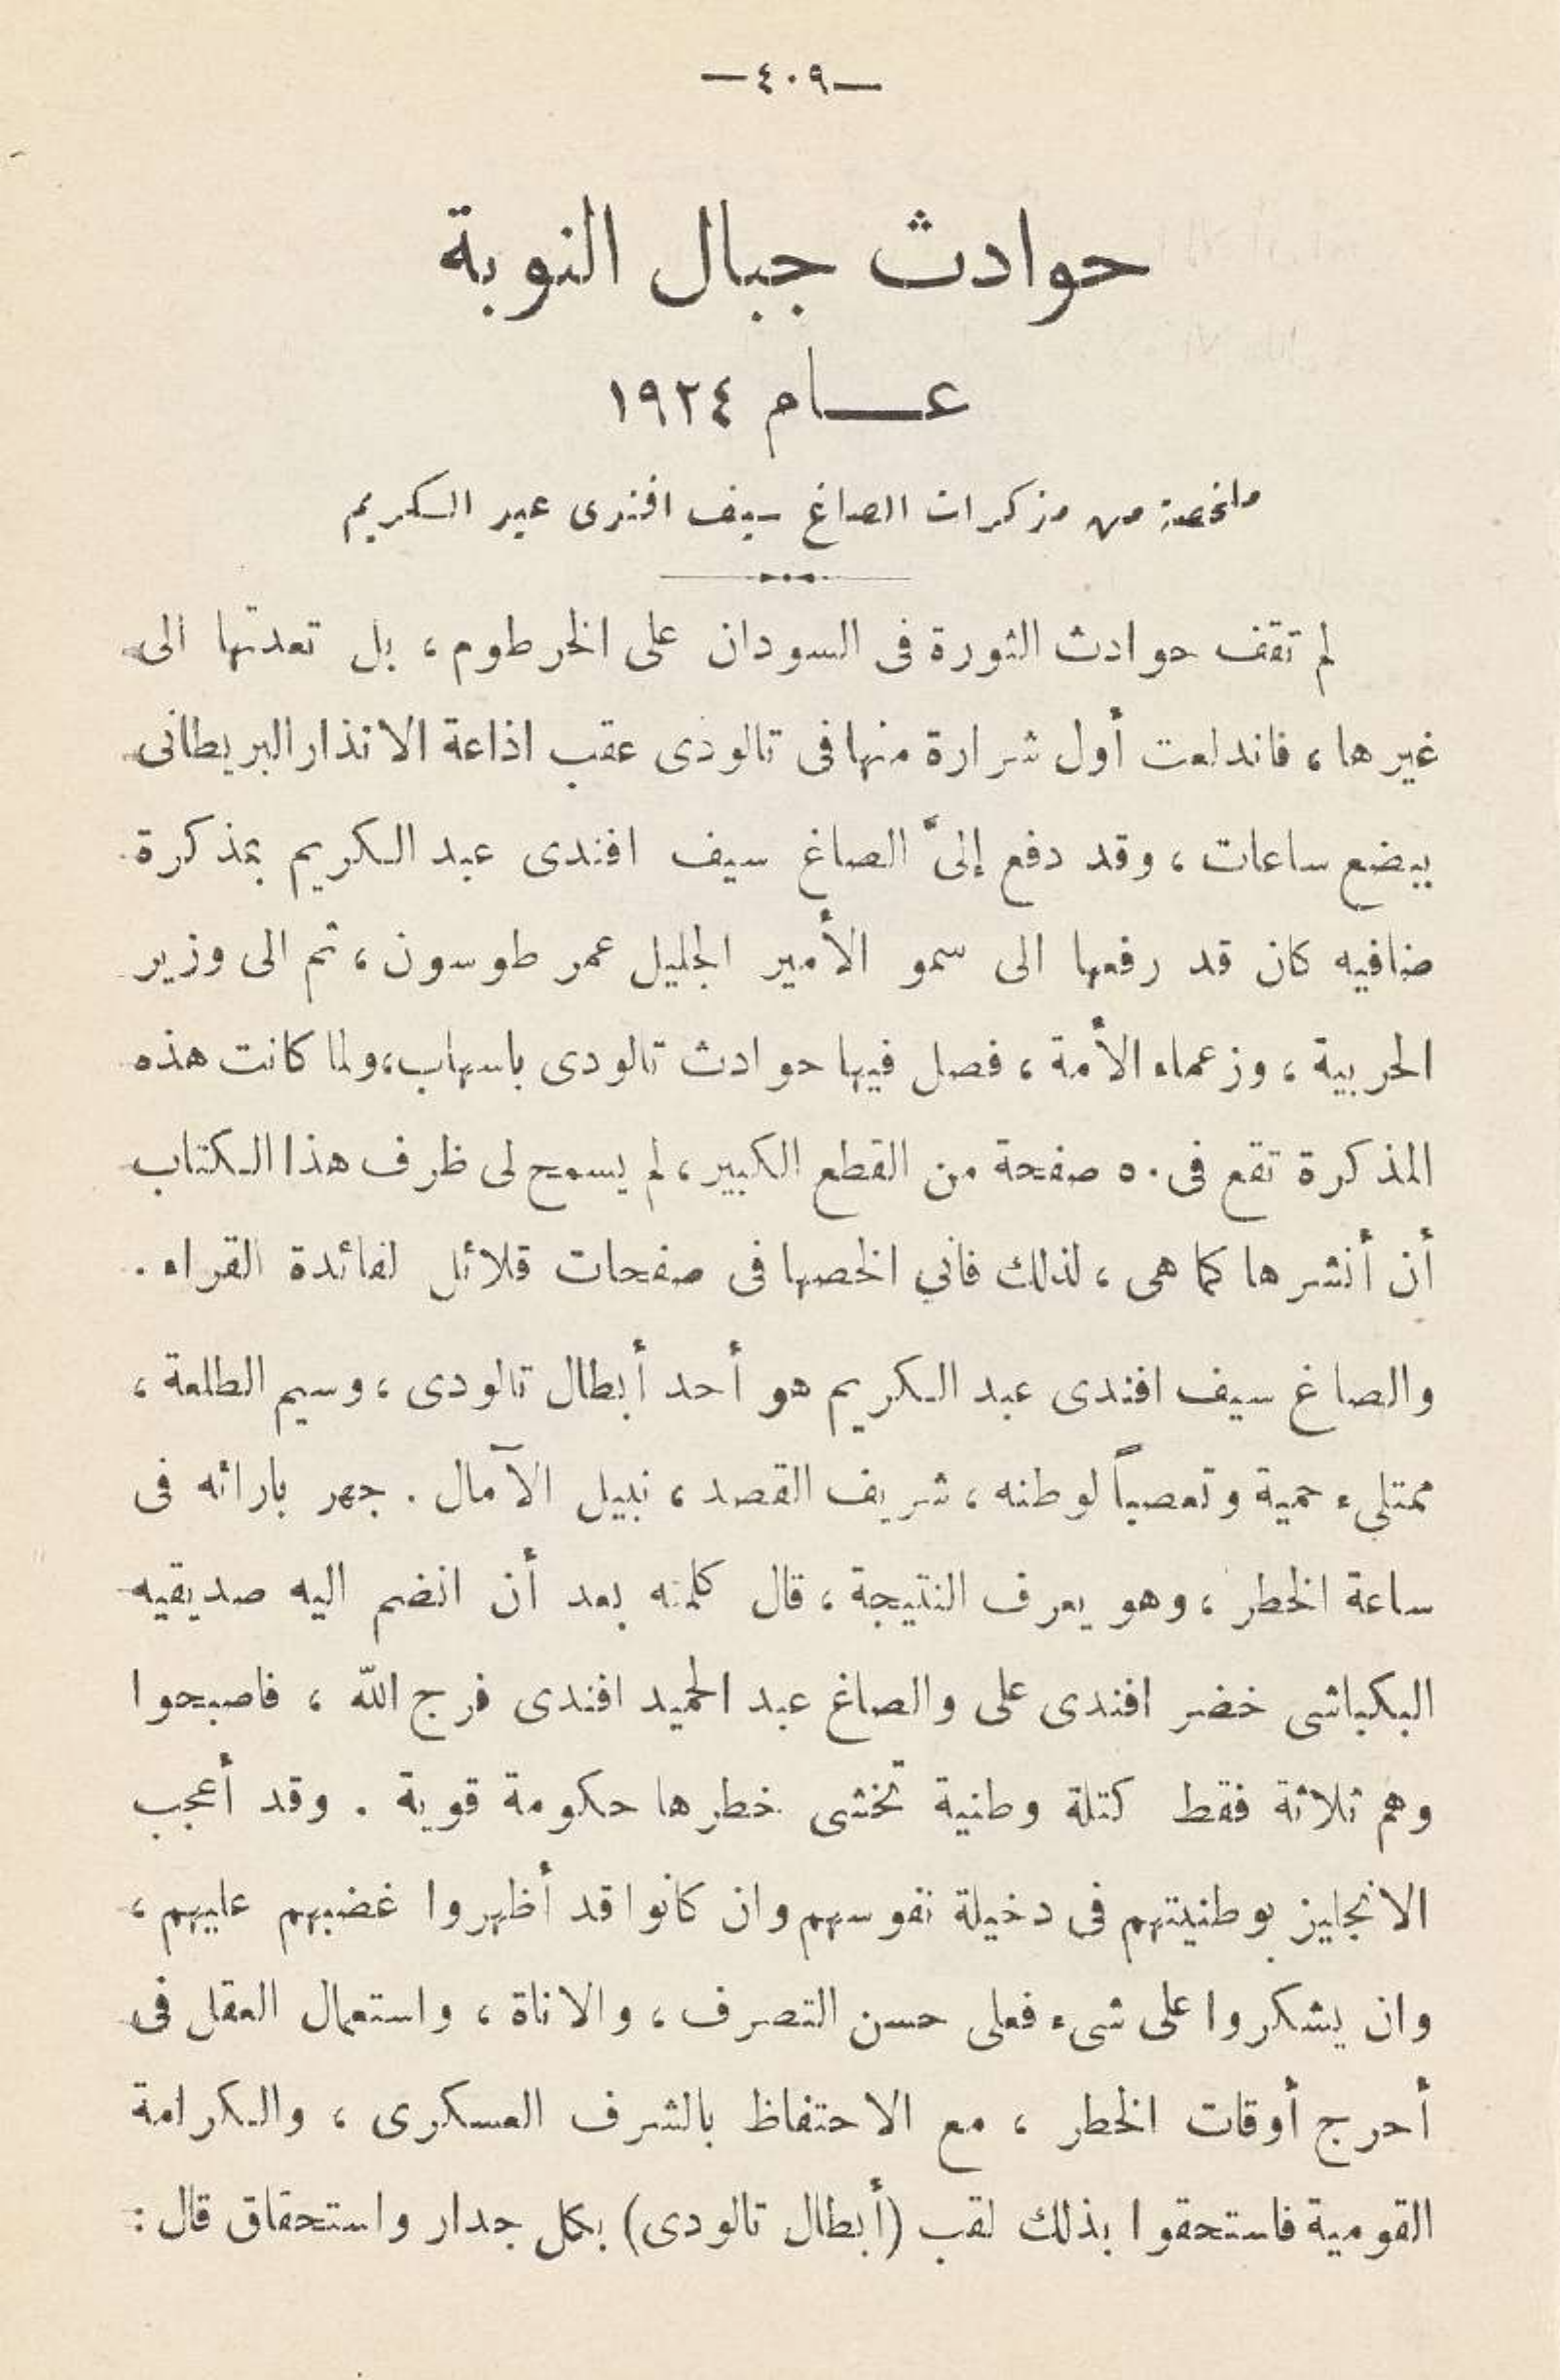 —٤٠٩—
حوادث جبال النوبة
عـــام ١٩٢٤
ملخصة من مذكرات الصاغ سيف افندى عبد الكريم
لم تقف حوادث الثورة فى السودان على الخرطوم ، بل تعدتها الى
غيرها ، فاندلعت أول شرارة منها فى تالودى عقب اذاعة الانذار البريطانى
ببضع ساعات ، وقد دفع إلىَّ الصاغ سيف افندى عبد الكريم بمذكرة
ضافيه كان قد رفعها الى سمو الأمير الجليل عمر طوسون ، ثم الى وزير
الحربية ، وزعماء الأمة ، فصل فيها حوادث تالودى باسهاب، ولما كانت هذه
المذكرة تقع فى ٥٠ صفحة من القطع الكبير ، لم يسمح لى ظرف هذا الكتاب
أن أنشرها كما هى ، لذلك فاني الخصها فى صفحات قلائل لفائدة القراء .
والصاغ سيف افندى عبد الكريم هو أحد أبطال تالودى ، وسيم الطلعة ،
ممتلىء حمية وتعصباً لوطنه ، شريف القصد ، نبيل الآمال . جهر بارائه فى
ساعة الخطر ، وهو يعرف النتيجة ، قال كلمته بعد أن انضم اليه صديقيه
البكباشى خضر افندى على والصاغ عبد الحميد افندى فرج الله ، فاصبحوا
وهم ثلاثة فقط كتلة وطنية تخشى خطرها حكومة قوية . وقد أعجب
الانجليز بوطنيتهم فى دخيلة نفوسهم وان كانوا قد أظهروا غضبهم عليهم ،
وان يشكروا على شىء فعلى حسن التصرف ، والاناة ، واستعمال العقل فى
أحرج أوقات الخطر ، مع الاحتفاظ بالشرف العسكرى ، والكرامة
القومية فاستحقوا بذلك لقب (أبطال تالودى) بكل جدار واستحقاق قال :